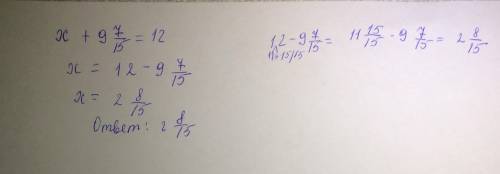 x + 9 7/15 = 12
x = 12 - 9 7/15
x = 2 8/15
Ответ: 2 8/15
12 - 9 7/15 = 11 15/15 - 9 7/15 = 2 8/15
11+15/15